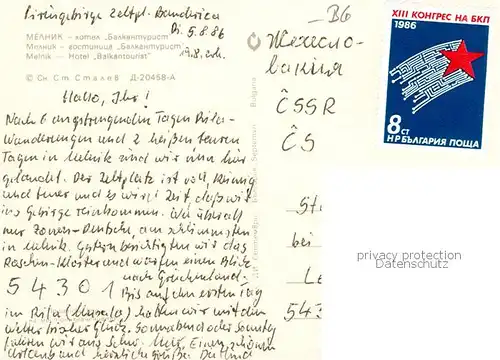 Piringebirge Zeltpl. Banderica
Di. 5.8.86
МЕЛНИК – хотел „Балкантурист“
Мелник – гостиница „Балкантурист“
Melnik – Hotel „Balkantourist“
© Сн. Ст. Сталев Д-20458-А
Hallo, Ihr!
Nach 6 anstrengenden Tagen Rila-
Wanderungen und 2 heißen teuren
Tagen in Melnik sind wir nun hier
gelandet. Der Zeltplatz ist voll,
und teuer und es wird Zeit, daß wir
ins Gebirge reinkommen. Wo überall
nur Zonen-Deutsche, am schlimmsten
in Melnik. Gestern besichtigten wir das
Roschen-Kloster und warfen einen Blick
nach Griechenland.
5 4 3 0 1
Bis auf den ersten Tag
im Rila (Musala) hatten wir mit dem
Wetter bisher Glück. Sonnabend oder Sonntag
fahren wir ans Schw. Meer. Einen schönen
und herzliche Grüße
Bulgaria
Чехосло-
вакия
ČSSR
ČS
B6
XIII КОНГРЕС НА БКП
1986
8 СТ
НР БЪЛГАРИЯ ПОЩА
St
bei
Le
543
privacy protection
Datenschutz